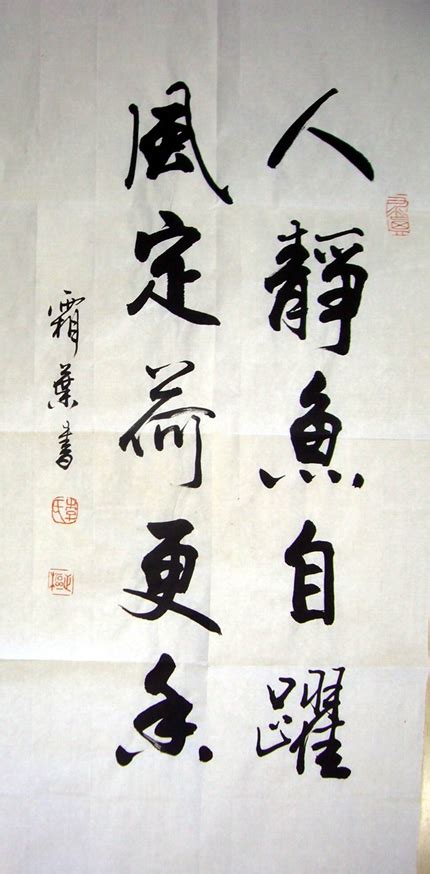 人靜魚自躍
風定荷更香
霜葉書
李氏